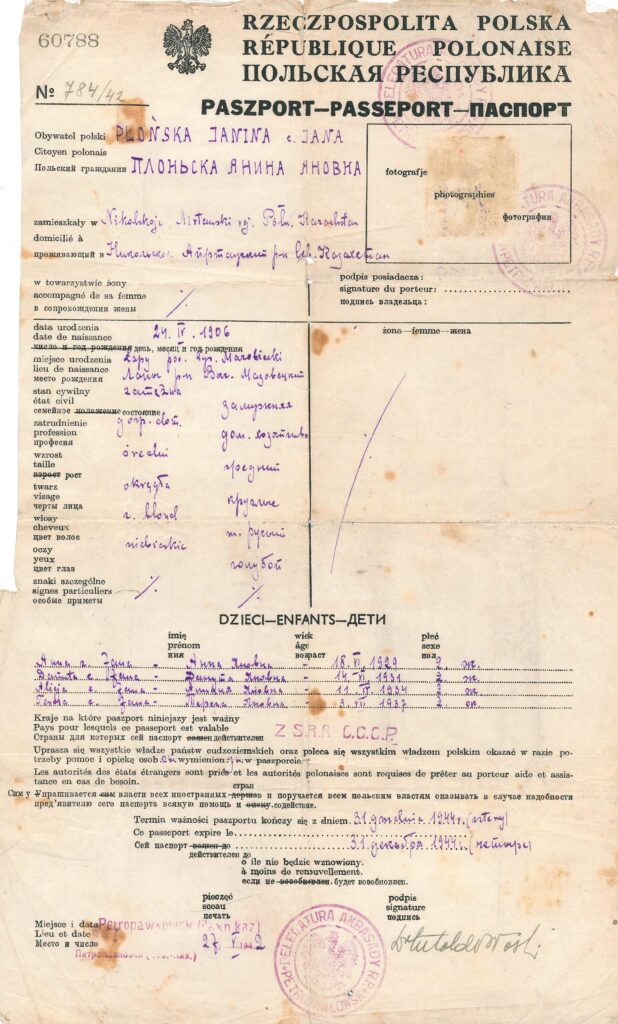 60788
RZECZPOSPOLITA POLSKA
RÉPUBLIQUE POLONAISE
ПОЛЬСКАЯ РЕСПУБЛИКА
№ 784/42
PASZPORT—PASSEPORT—ПАСПОРТ
Obywatel polski PŁOŃSKA JANINA c. JANA
Citoyen polonais
Польский гражданин ПЛОНЬСКА ЯНИНА ЯНОВНА
fotografje
photographies
фотографии
zamieszkały w Nikolskoje, rej. Półn. Kazachstan
domicilié à
проживающий в Никольское р-н Сев. Казахстан
w towarzystwie żony
accompagné de sa femme
в сопровождении жены
podpis posiadacza:
signature du porteur:
подпись владельца:
data urodzenia 24. IV. 1906
date de naissance
число и год рождения день, месяц и год рождения
żona—femme—жена
miejsce urodzenia Łapy pow. Wys. Mazowiecki
lieu de naissance
место рождения Лапы р-н Выс. Мазовецкий
stan cywilny zamężna
état civil
семейное положение состояние замужняя
zatrudnienie gosp. dom.
profession
професия дом. хозяйство
wzrost średni
taille
взрост рост средний
twarz okrągła
visage
черты лица круглые
włosy c. blond
cheveux
цвет волос т. русый
oczy niebieskie
yeux
цвет глаз голубой
znaki szczególne
signes particuliers
особые приметы
DZIECI—ENFANTS—ДЕТИ
imię wiek płeć
prénom âge sexe
имя возраст пол
Anna c. Jana - Анна Яновна - 18. VI. 1929 ż ж.
Danuta c. Jana - Данута Яновна - 14. VI. 1931 ż ж.
Alicja c. Jana - Яновна - 11. IV. 1934 ż ж.
c. Jana - Тереса Яновна - 3. VII 1937 ż ж.
Kraje na które paszport niniejszy jest ważny
Pays pour lesquels ce passeport est valable
Страны для которых сей паспорт важен действителен
Z.S.R.R. С.С.С.Р.
Uprasza się wszystkie władze państw cudzoziemskich oraz poleca się wszystkim władzom polskim okazać w razie potrzeby pomoc i opiekę osob wymienion w paszporcie.
Les autorités des états étrangers sont priés et les autorités polonaises sont requises de prêter au porteur aide et assistance en cas de besoin.
стран
Сим у Упрашивается сим власти всех иностранных держав и поручается всем польским властям оказывать в случае надобности предъявителю сего паспорта всякую помощь и опеку. содействие.
Termin ważności paszportu kończy się z dniem 31 grudnia 1944 r. (cztery)
Ce passeport expire le
Сей паспорт важен до 31 декабря 1944 г. (четыре)
действителен до
o ile nie będzie wznowiony.
à moins de renouvellement.
если не возобновлен. будет возобновлен.
pieczęć podpis
sceau signature
печать подпись
Miejsce i data
Lieu et date
Место и число 27. V 1942
DELEGATURA AMBASADY R.P.